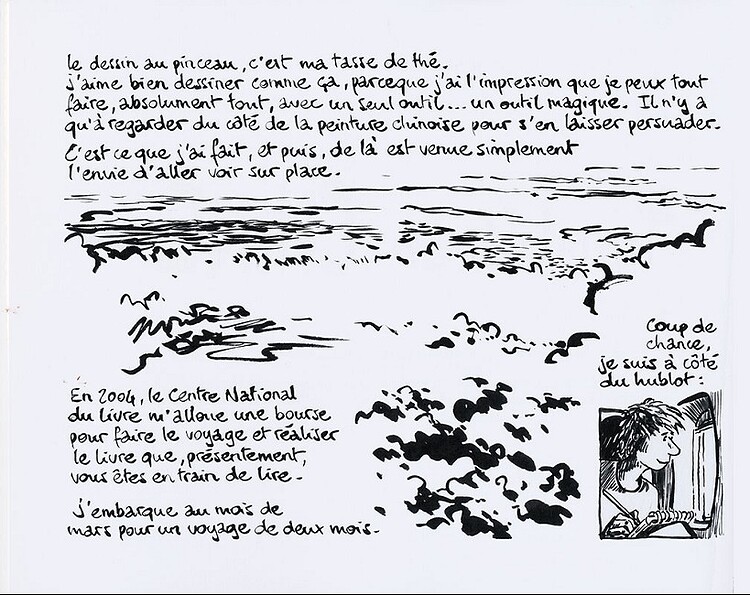 le dessin au pinceau, c'est ma tasse de thé.
j'aime bien dessiner comme ça, parceque j'ai l'impression que je peux tout
faire, absolument tout, avec un seul outil... un outil magique. Il n'y a
qu'à regarder du côté de la peinture chinoise pour s'en laisser persuader.
C'est ce que j'ai fait, et puis, de là est venue simplement
l'envie d'aller voir sur place.
Coup de
chance,
je suis à côté
du hublot:
En 2004, le Centre National
du livre m'alloue une bourse
pour faire le voyage et réaliser
le livre que, présentement,
vous êtes en train de lire.
j'embarque au mois de
mars pour un voyage de deux mois.